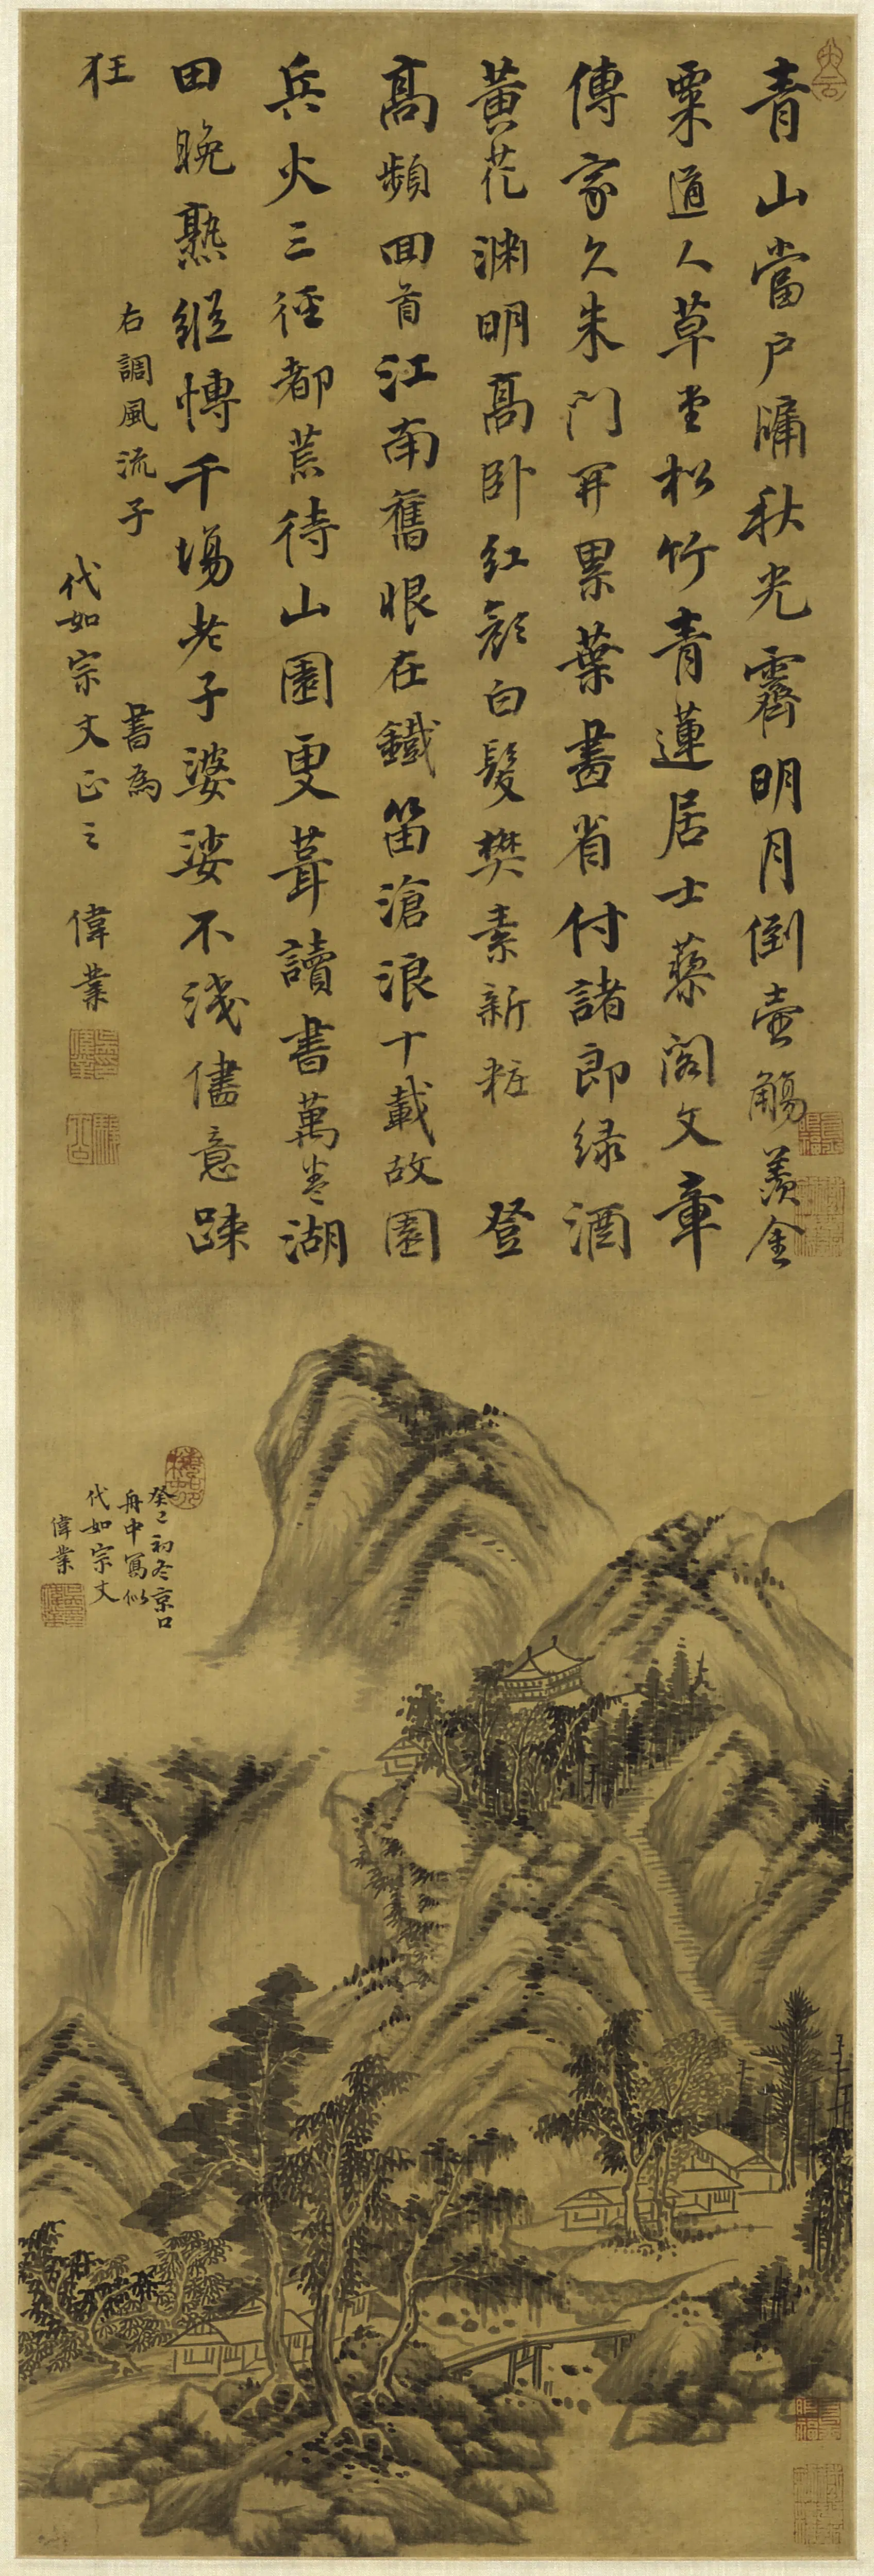 青山當戶牖秋光霽明月倒壺觴羨金
粟道人草堂松竹青蓮居士藜閣文章
傳家久朱門開累葉畫省付諸郎綠酒
黃花淵明高臥紅顏白髮樊素新粧 登
高頻回首江南舊恨在鐵笛滄浪十載故園
兵火三徑都荒待山園更葺讀書萬卷湖
田晚熟縱慱千場老子婆娑不淺儘意踈
狂
右調風流子 書為
代如宗丈正之 偉業
癸巳初冬京口
舟中寫似
代如宗丈
偉業